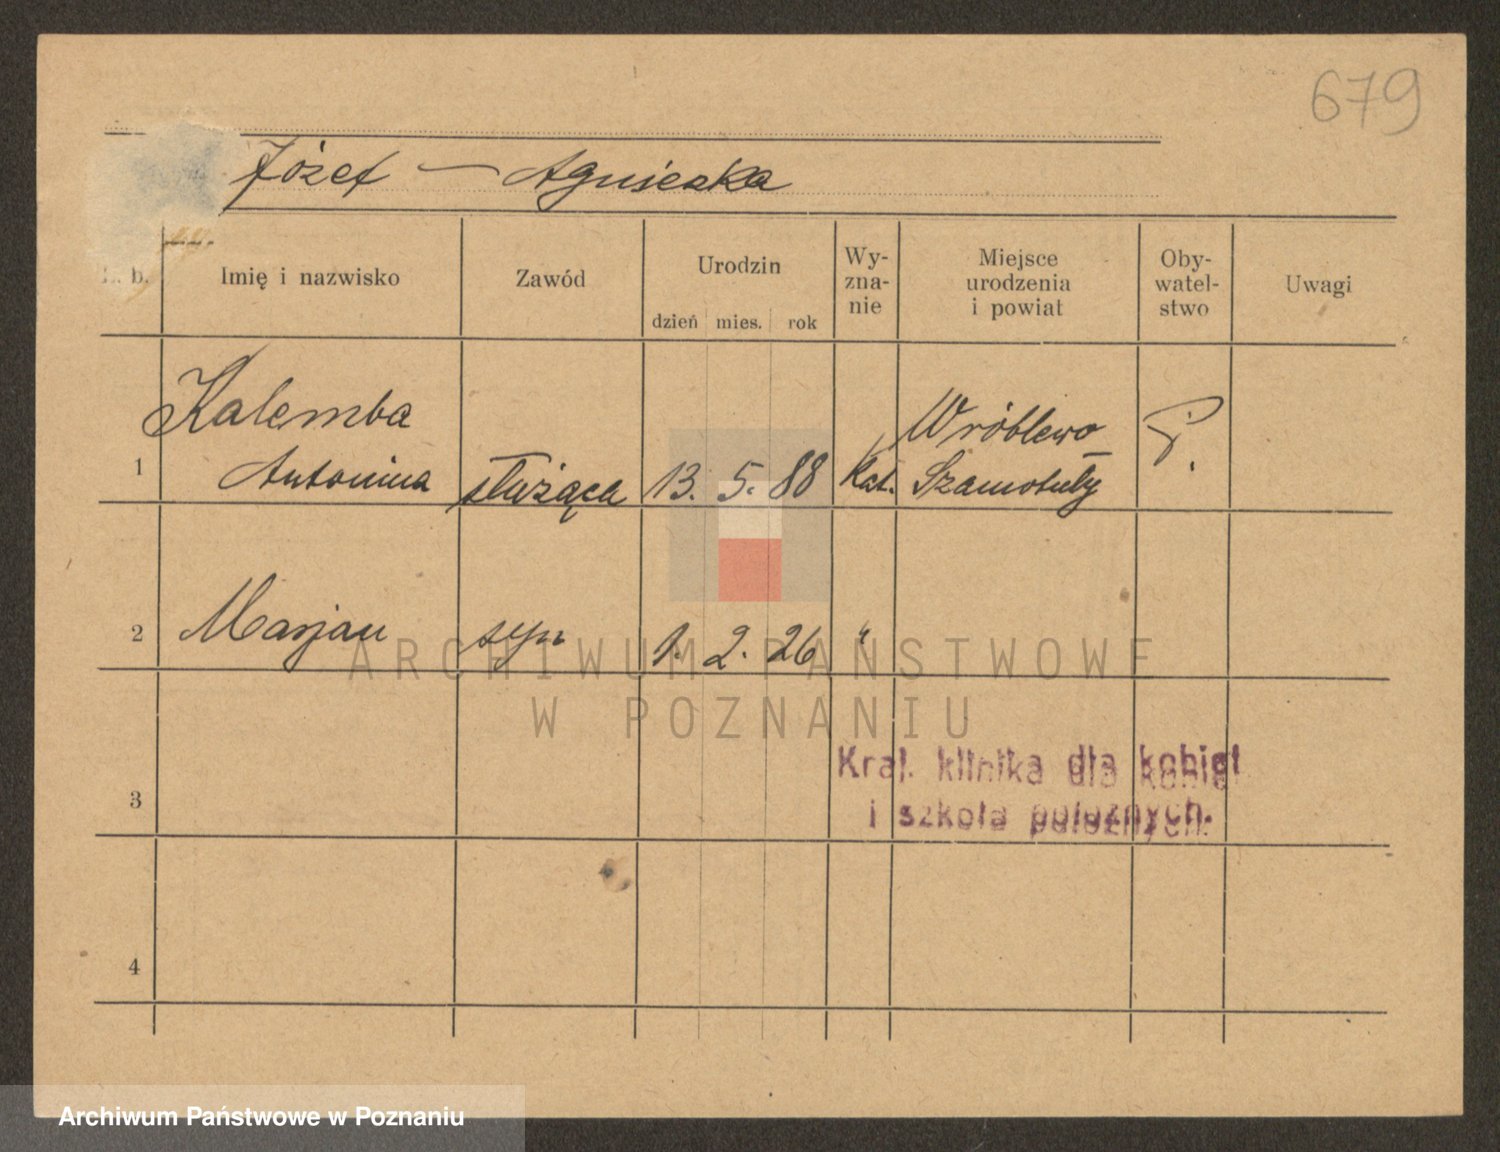 679
Józef — Agnieszka
L. b.
Imię i nazwisko
Zawód
Urodzin
dzień mies. rok
Wy-
zna-
nie
Miejsce
urodzenia
i powiat
Oby-
watel-
stwo
Uwagi
Kalemba Wróblewo P.
1 Antonina służąca 13. 5. 88 kat. Szamotuły
2 Marjan syn 1. 2. 26 "
ARCHIWUM PAŃSTWOWE
W POZNANIU
Kraj. klinika dla kobiet
3 i szkoła położnych.
4
Archiwum Państwowe w Poznaniu